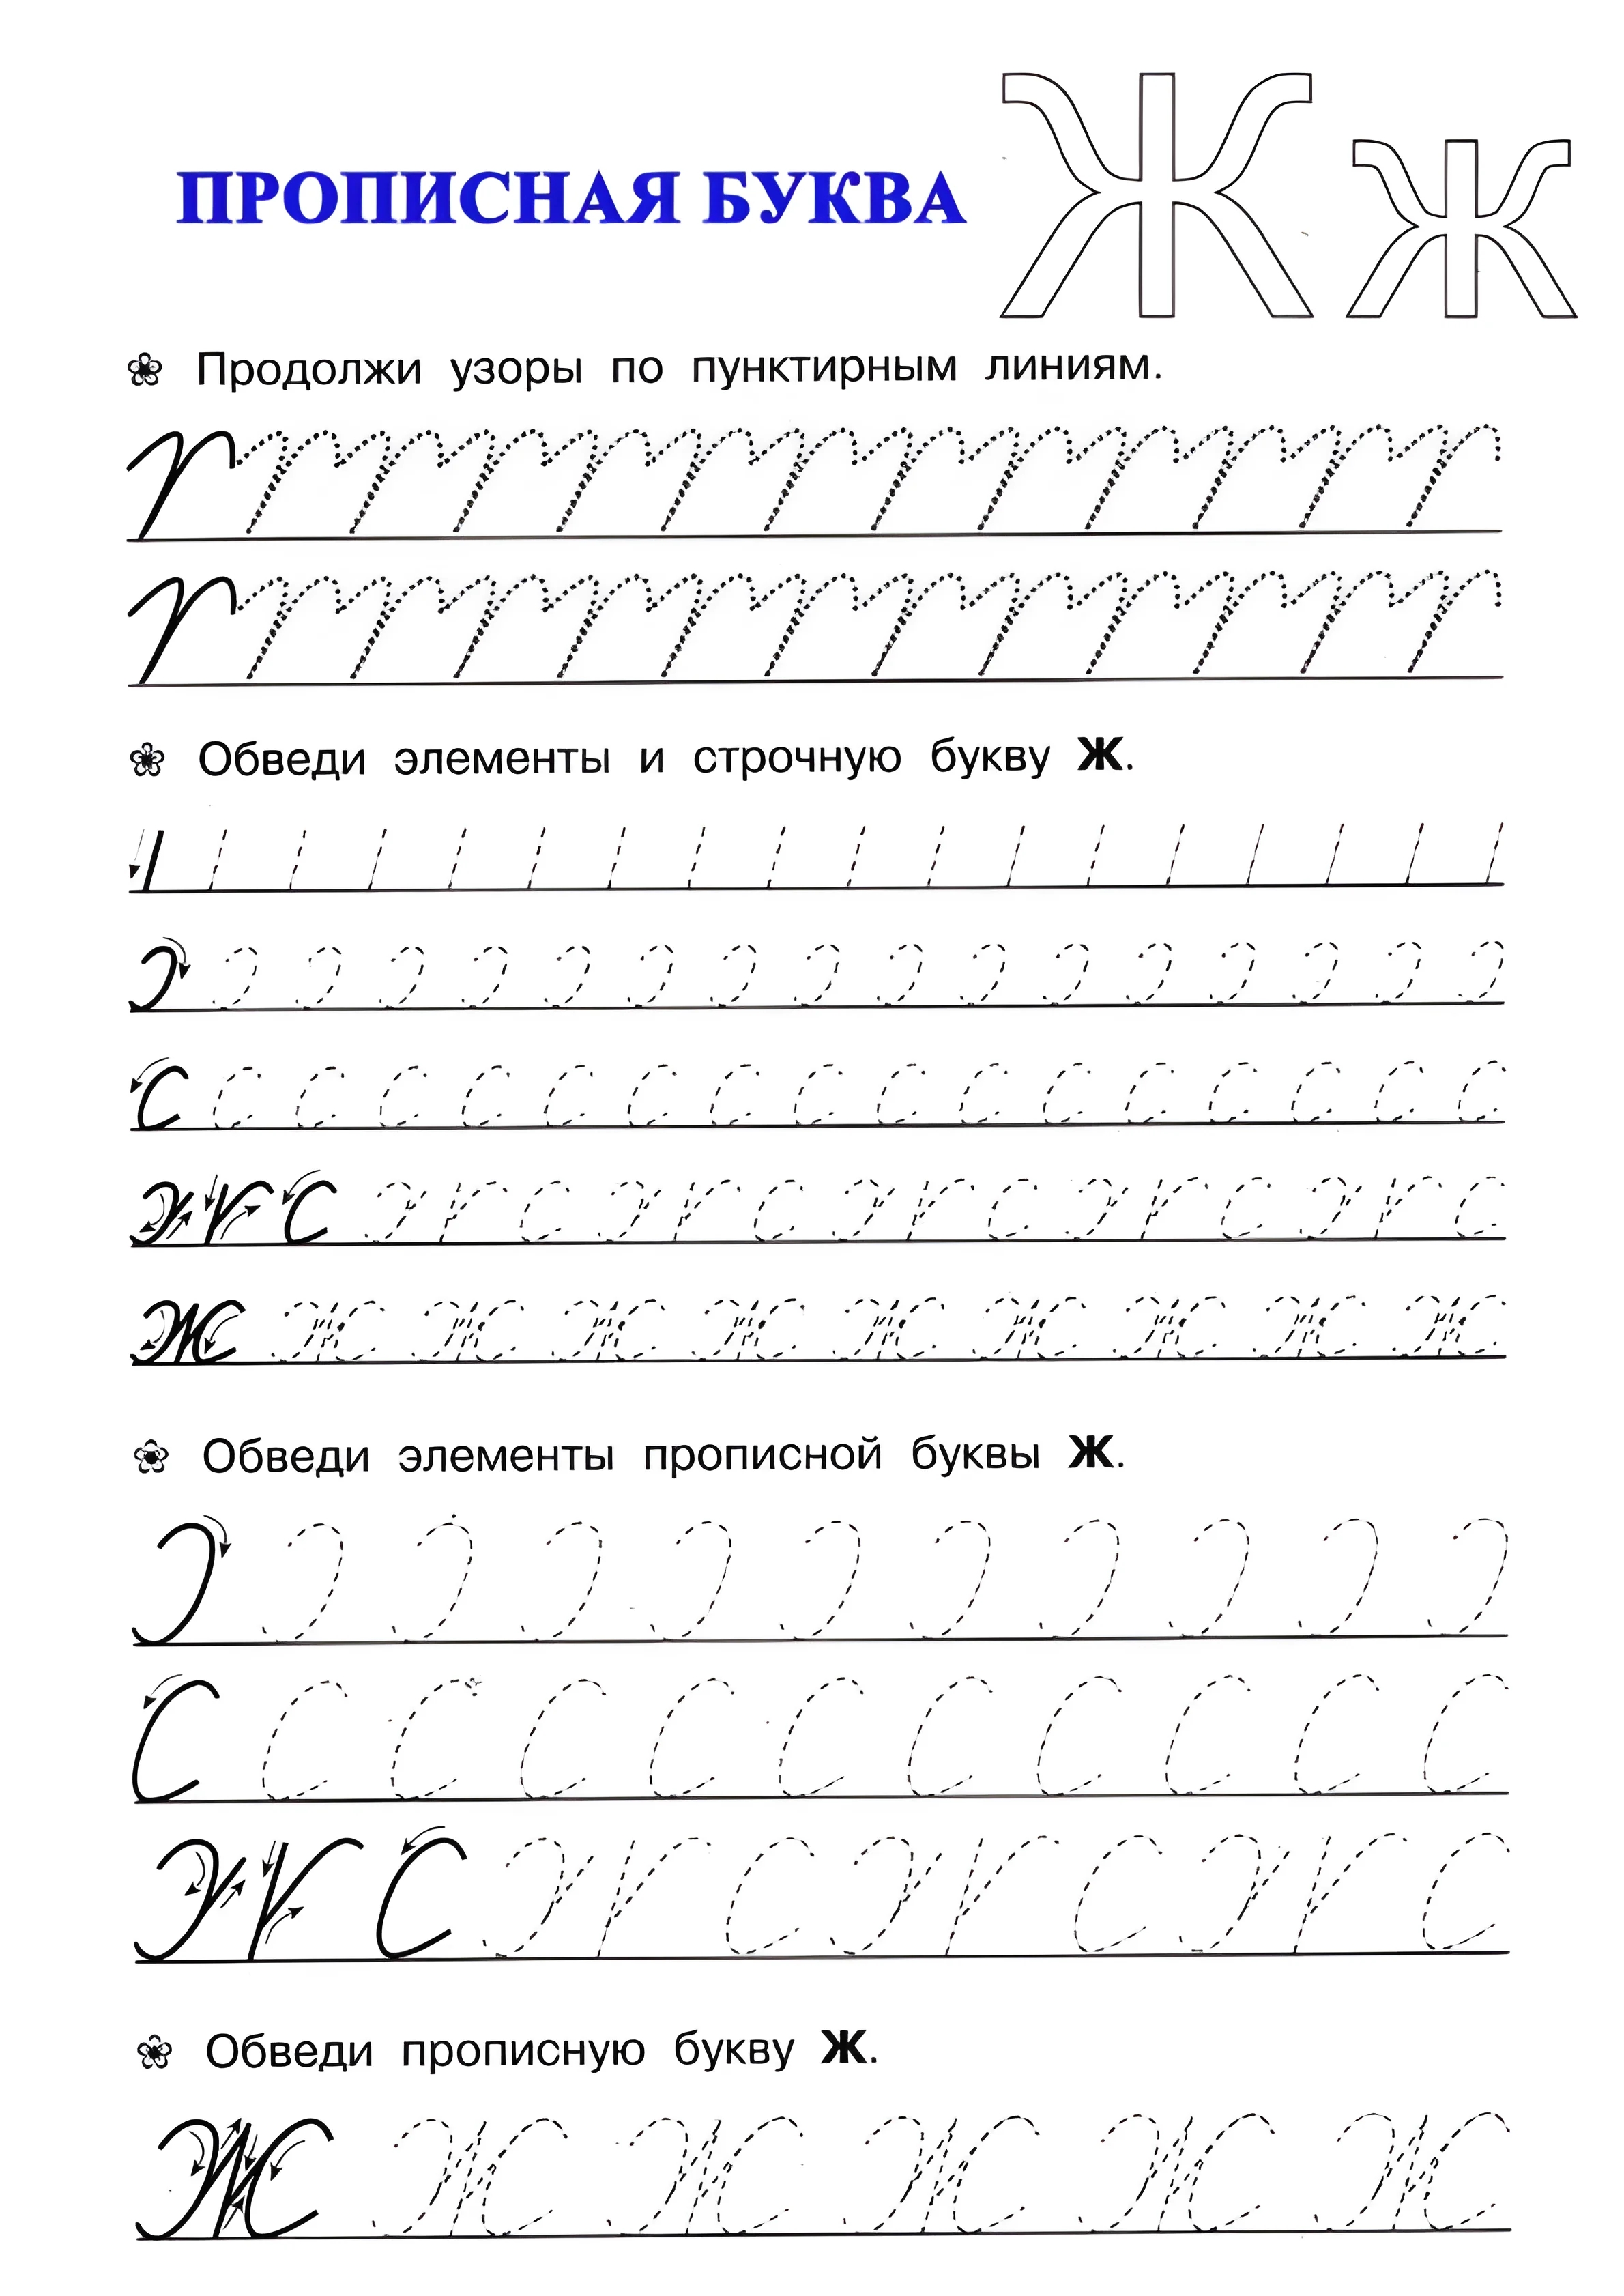 ПРОПИСНАЯ БУКВА Ж ж
Продолжи узоры по пунктирным линиям.
Обведи элементы и строчную букву Ж.
Ж ж ж ж ж ж ж ж ж ж
Обведи элементы прописной буквы Ж.
Обведи прописную букву Ж.
Ж Ж Ж Ж Ж Ж